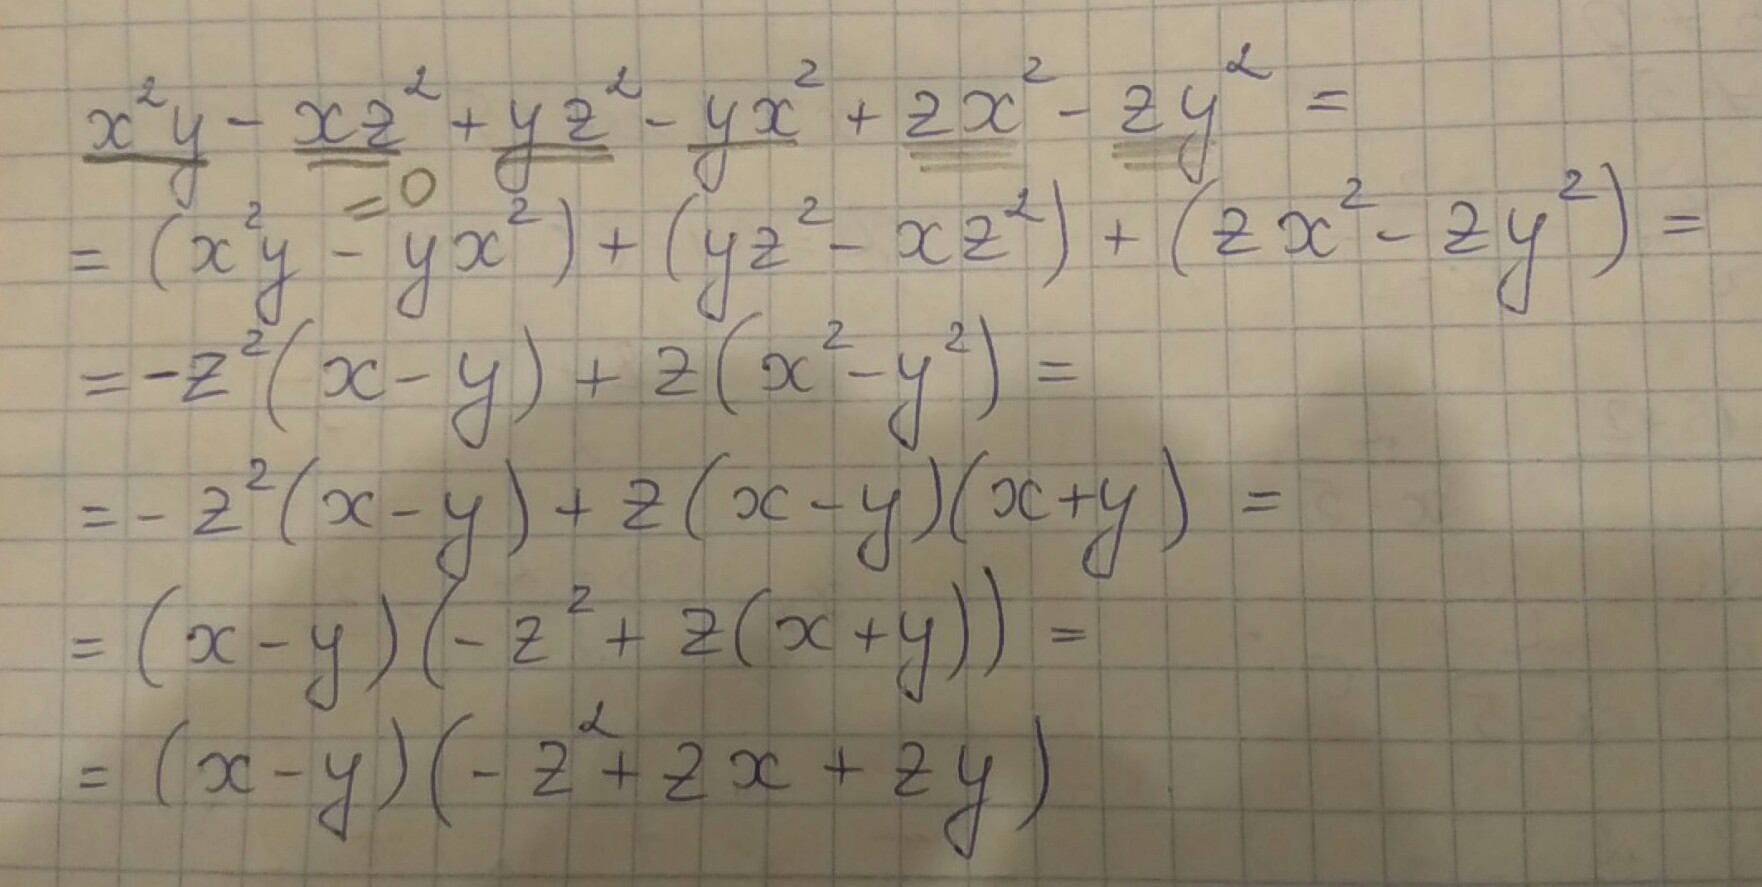 x²y - xz² + yz² - yx² + zx² - zy² =
= 0
= (x²y - yx²) + (yz² - xz²) + (zx² - zy²) =
= -z²(x - y) + z(x² - y²) =
= - z²(x - y) + z(x - y)(x + y) =
= (x - y)(- z² + z(x + y)) =
= (x - y)(- z² + zx + zy)